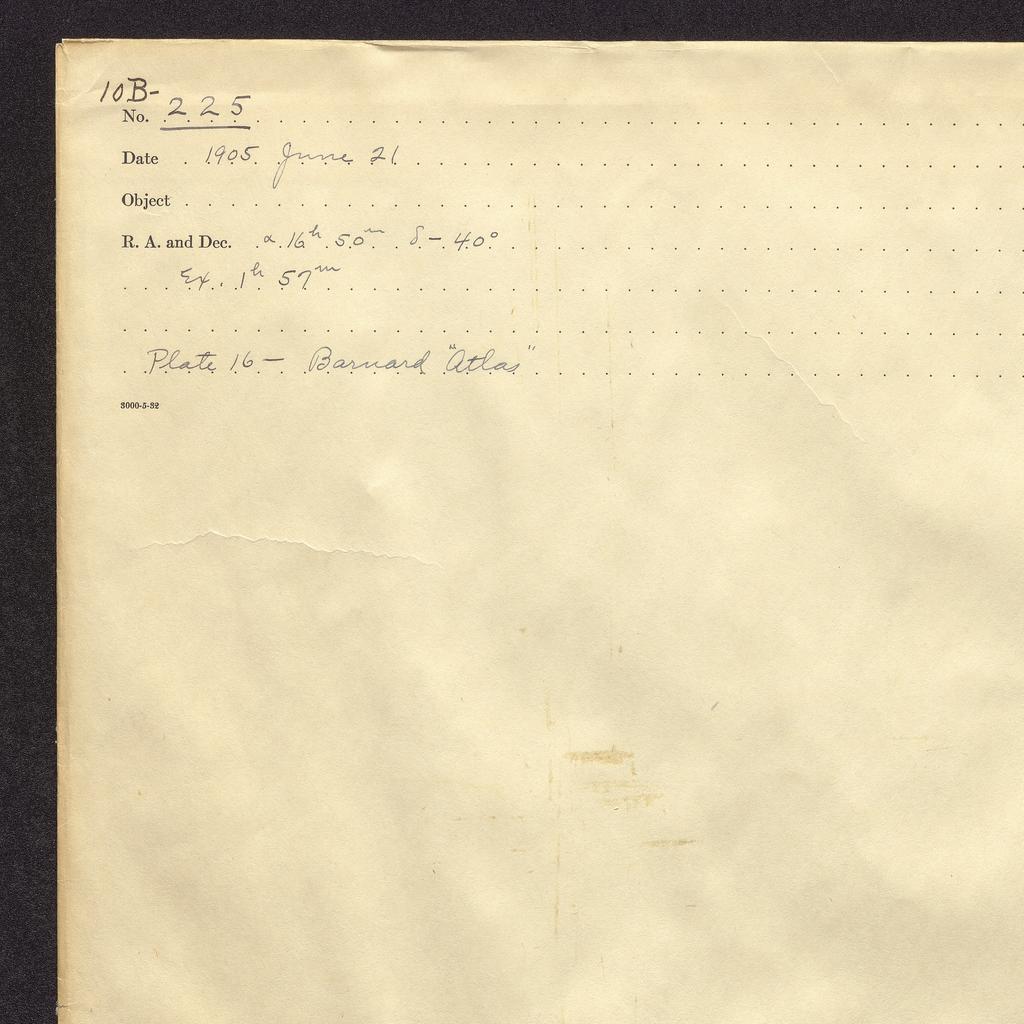 10B-
No. 225
Date 1905 June 21
Object
R. A. and Dec. α 16h 50m δ - 40°
Ex. 1h 57m
Plate 16 - Barnard "Atlas"
3000-5-32